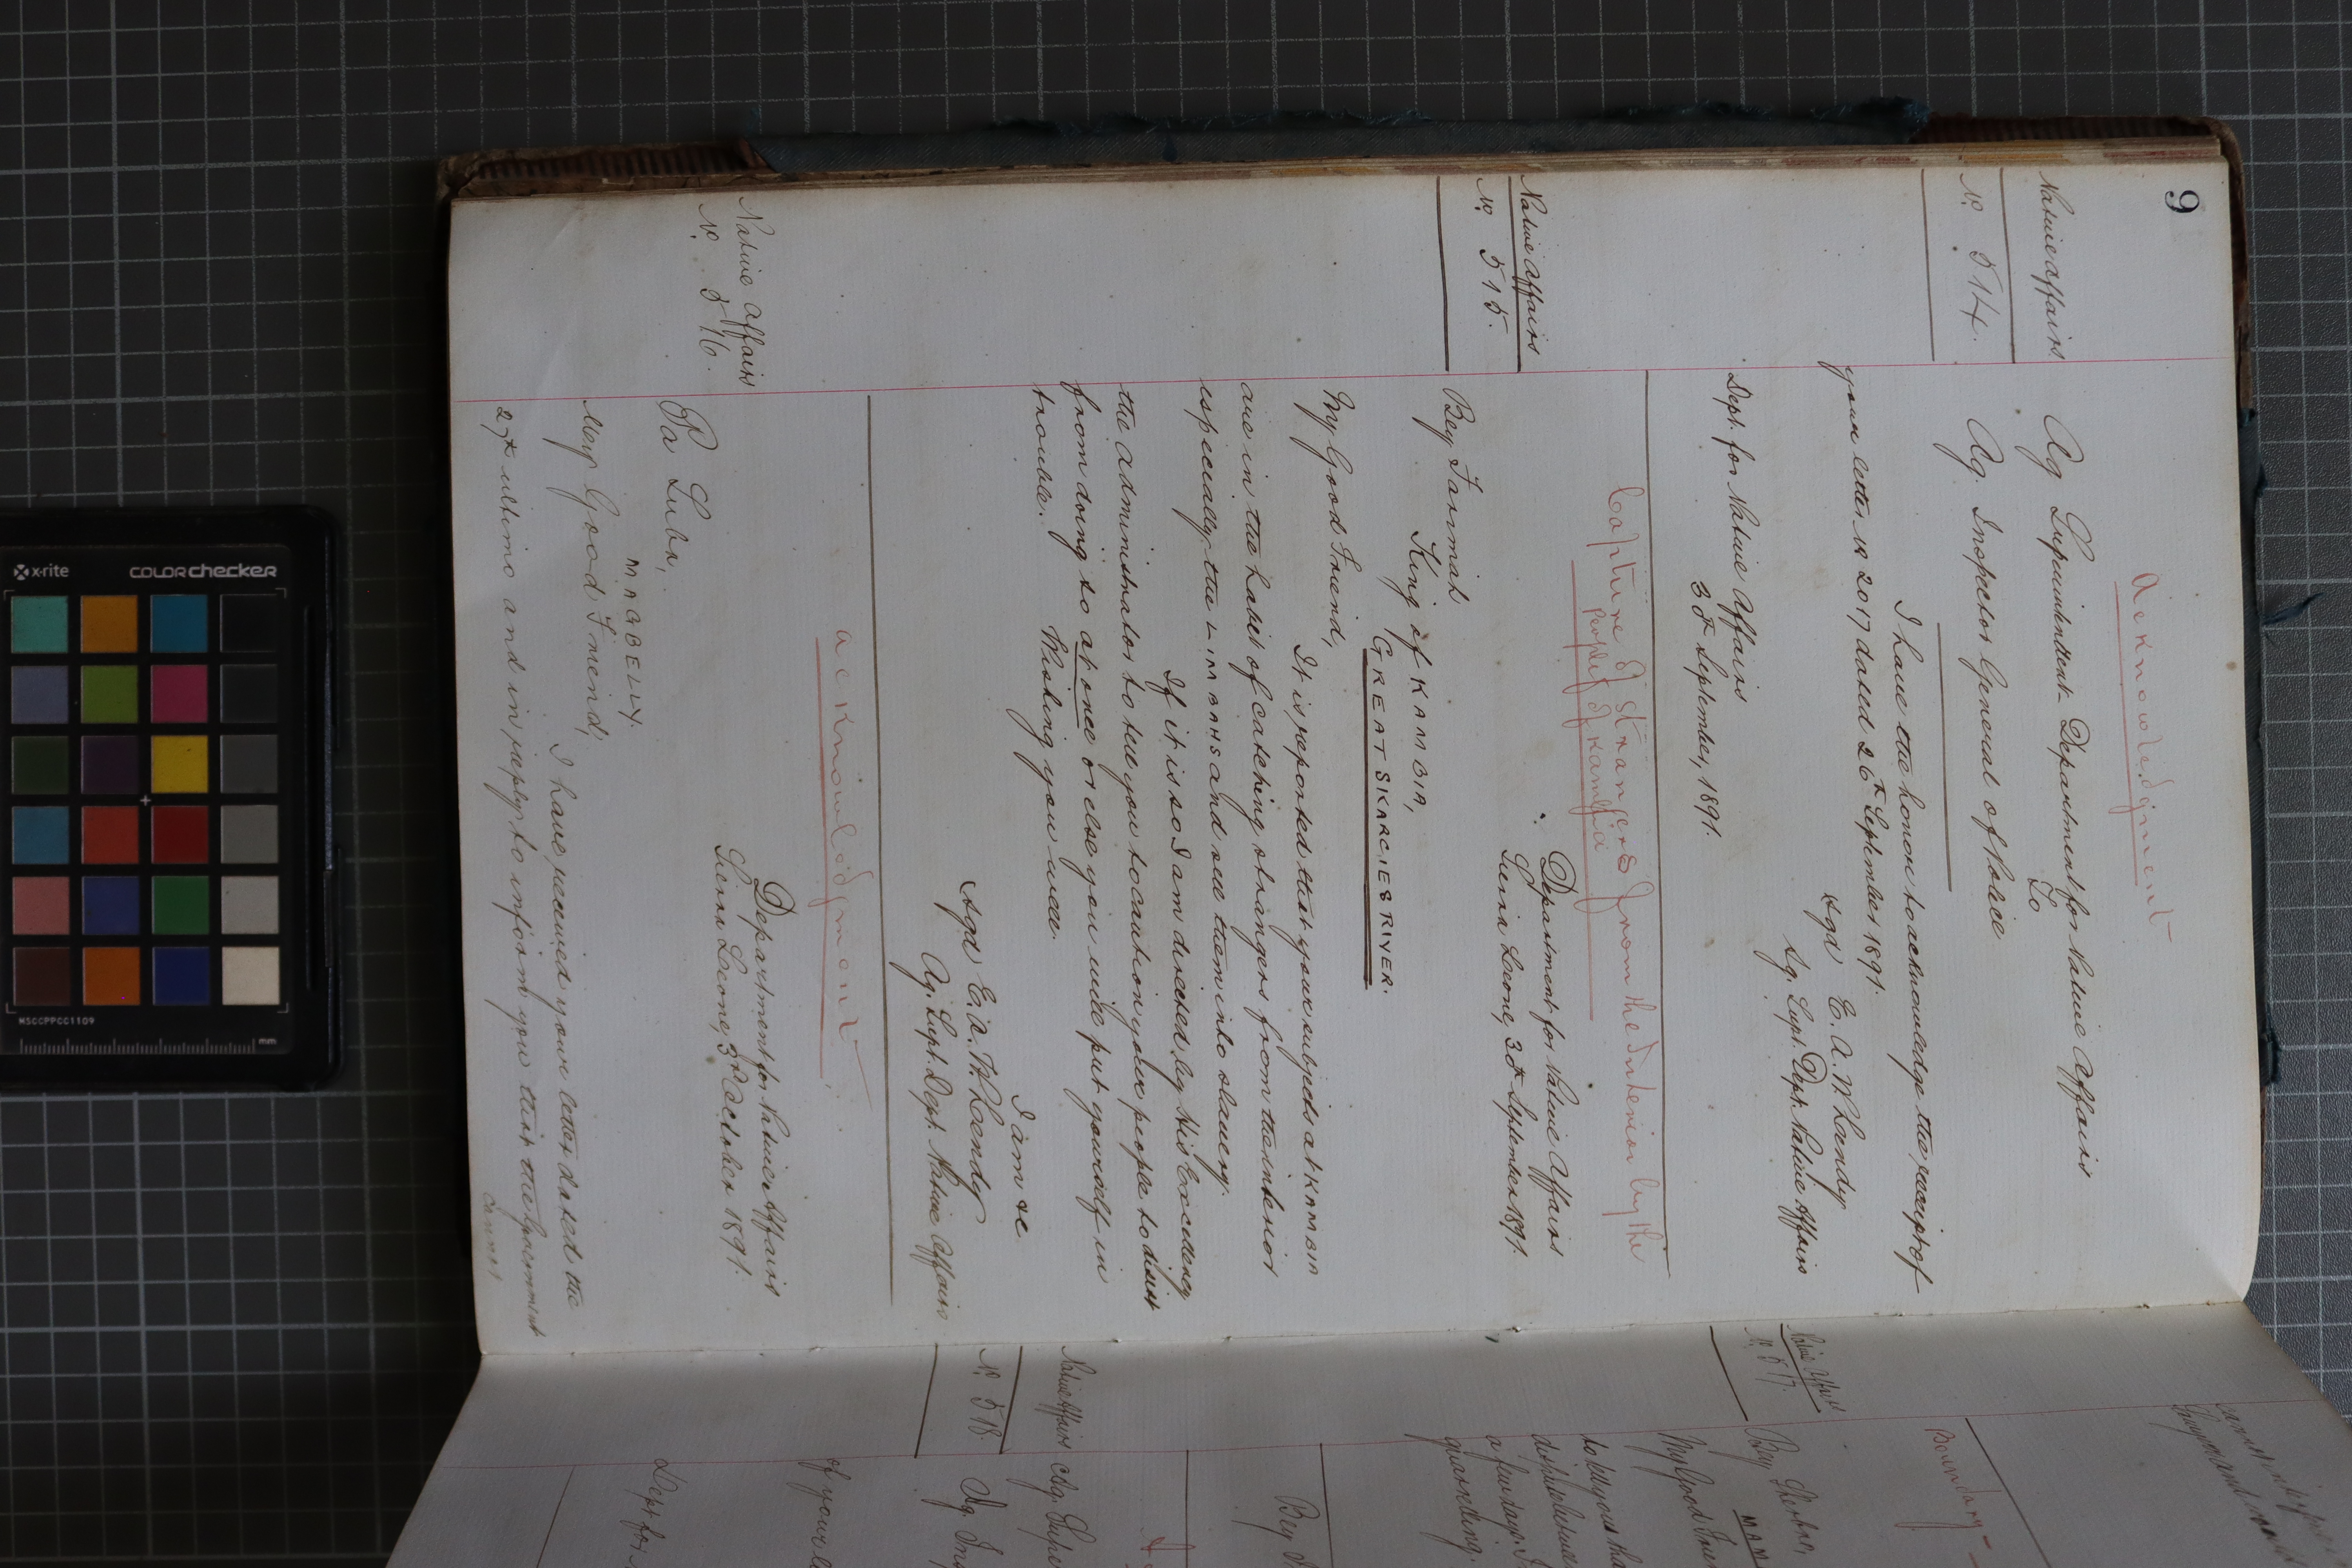 9
Acknowledgment
Native Affairs
No. 514.
Ag Superintendent Department for Native Affairs
To
Ag. Inspector General of Police
I have the honor to acknowledge the receipt of
your letter No 2017 dated 26th September 1891.
sgd E. A. W. Hendy
Ag. Supt. Dept. Native Affairs
Dept. for Native Affairs
30th September, 1891.
Capture of strangers from the Interior by the
people of Kambia
Native Affairs
No. 515.
Department for Native Affairs
Sierra Leone, 30th September 1891.
Bey Farmah
King of KAMBIA,
GREAT SKARCIES RIVER.
My Good Friend,
It is reported that your subjects at KAMBIA
are in the habit of catching strangers from the interior
especially the LIMBAHS and sell them into slavery.
If it is so I am directed by His Excellency
the administrator to tell you to caution your people to desist
from doing so at once or else you will put yourself in
trouble.
Wishing you well.
I am &c
sgd E. A. W. Hendy
Ag. Supt. Dept. Native Affairs
Acknowledgment
Native Affairs
No. 516.
Department for Native Affairs
Sierra Leone, 3rd October 1891.
Pa Suba,
MAGBELLY.
My Good Friend,
I have received your letter dated the
27th ultimo and in reply to inform you that the Government
cannot
Boundary
Native Affairs
No. 517.
Bey Sherbro,
MAM
My Good Frie
to tell you tha
a few days. I
quarreling.
Bey
Native Affairs
No. 518.
Ag. Supe
Ag. Insp
of your le
Dept for
x-rite
colorchecker
MSCCPPCC1109
mm